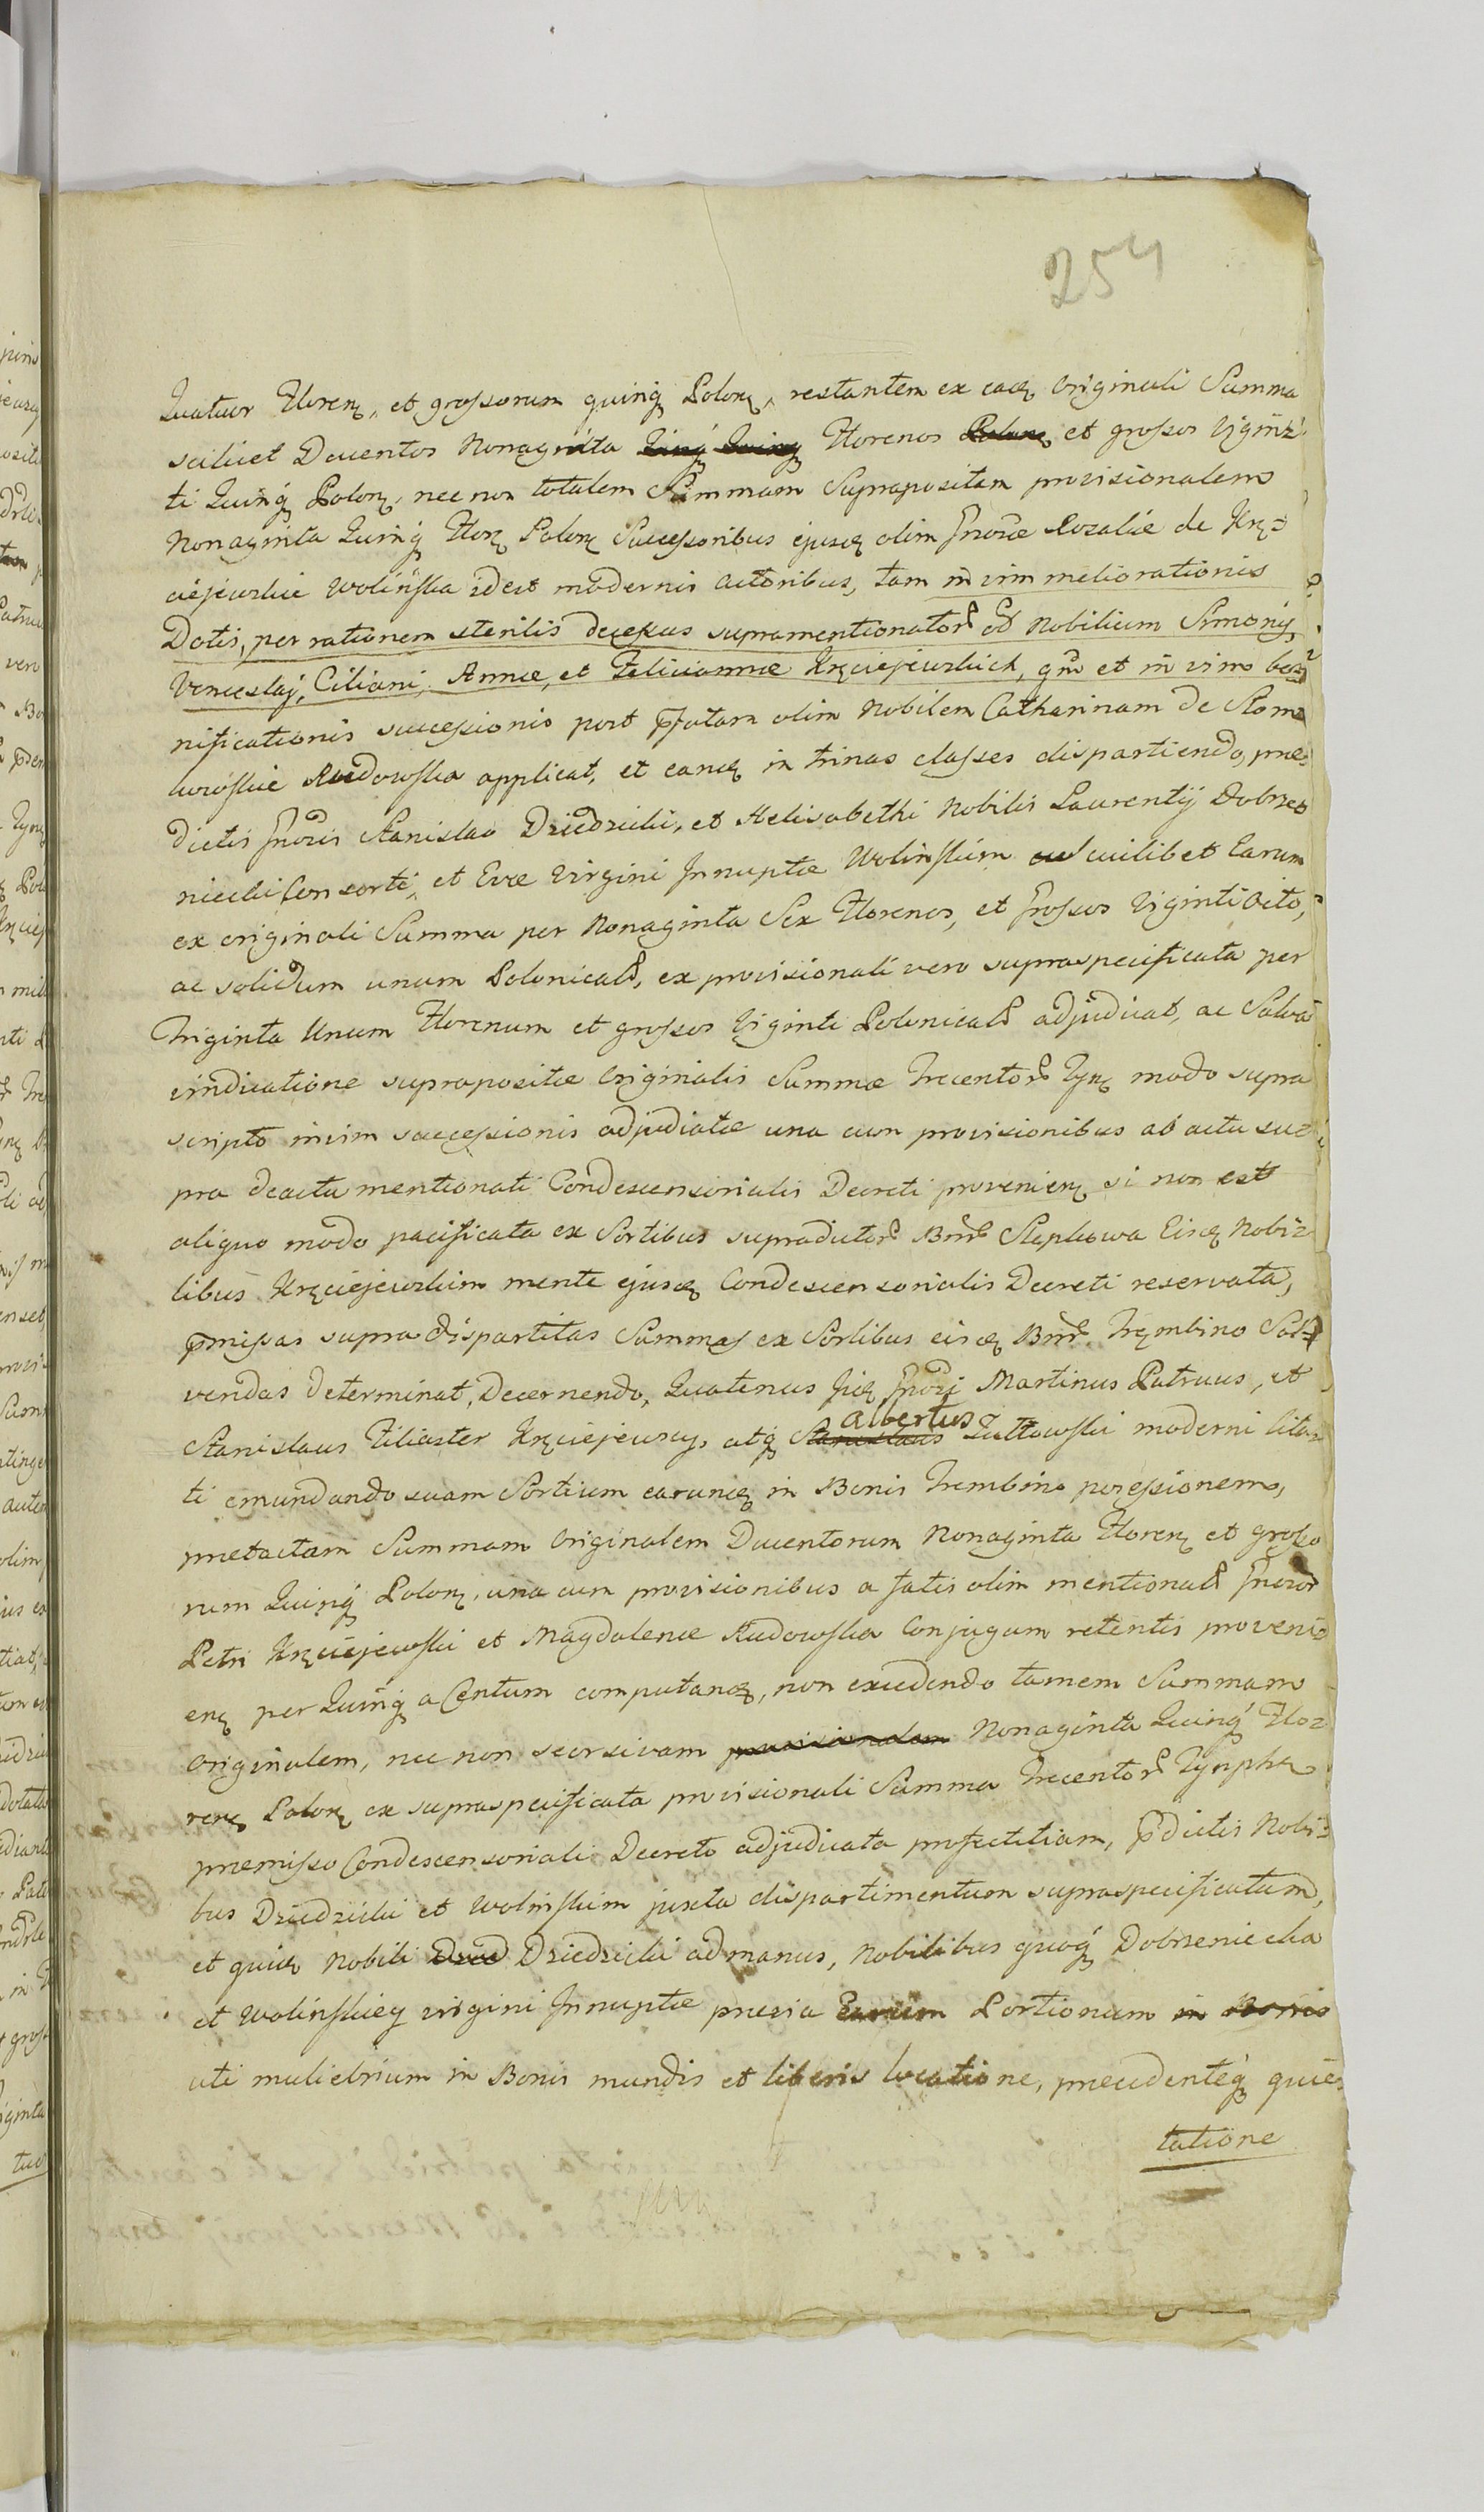 254
Quatuor Floren, et grossorum quinq Polon, restantem ex eade Originali Summa
scilicet Ducentos Nonaginta Florenos et grossos Viginz
ti Quinq Polon, nec non totalem Summam Suprapositam provisionalem
Nonaginta Quinq Flor Polon Successoribus ejusd olim Gnosae Rozaliae de Krę=
ciejewskie Wolińska idest modernis actoribus, tam in vim meliorationis
Dotis, per rationem sterilis decessus supramentionator Nobilium Simonij,
Venceslaj, Ciliani, Annae, et Felicianae Kręciejewskich, qm et in vim bo
nificationis successionis post pfatam olim Nobilem Catharinam de Slom
kowskie Rudowska applicat, et eand in trinas classes dispartiendo, prae
dictis Gnosis Stanislao Dziedzicki, et Helisabethi Nobilis Laurentij Dobrze
niecki Consorti, et Evae Virgini Innuptae Wolinskim cuilibet Earum
ex originali Summa per Nonaginta Sex Florenos, et Grossos Viginti Octo,
ac solidum unum Polonical, ex provisionali vero supraspecificata per
Triginta Unum Florenum et grossos Viginti Polonical adjudicat, ac Salva
vindicatione suprapositae Originalis Summae Trecentor Tyn modo supra
scripto in vim successionis adjudicatae una cum provisionibus ab actu su=
pra de actu mentionati Condescensorialis Decreti provenien si non est
aliquo modo pacificata ex Sortibus supradictor Bnr Slepkowa Eisd Nobi=
libus Kręciejewskim mente ejusd Condescensorialis Decreti reservata,
pmissas supra dispartitas Summas ex Sortibus eisd Bnr Trembino Sol
vendas determinat, Decernendo, Quatenus iid Gnosi Martinus Patruus, et
Stanislaus Filiaster Kręciejewscy, atq Stanislaus Albertus Zuttowski moderni Cita=
ti emundando suam Sortium earund in Bonis Trembino possessionem,
praetactam Summam Originalem Ducentorum Nonaginta Floren et grosso
rum Quinq Polon, una cum provisionibus a fatis olim mentional Gnosor
Petri Kręciejewski et Magdalenae Rudowska Conjugum retentis proveni=
en per Quinq a Centum computand, non excedendo tamen Summam
Originalem, nec non seorsivam provisionalem Nonaginta Quinq Flo=
ren Polon ex supraspecificata provisionali Summa Trecentor Tynph
praemisso Condescensoriali Decreto adjudicata profectitiam, pdictis Nobi=
bus Dziedzicki et Wolinskim juxta dispartimentum supraspecificatum,
et quid Nobili Dzied Dziedzicki ad manus, Nobilibus quoq Dobrzeniecka
et Wolinskiey virgini Innuptae praevia Earum Portionum in Bonis
uti muliebrium in Bonis mundis et liberis locatione, praecedenteq quie=
tatione